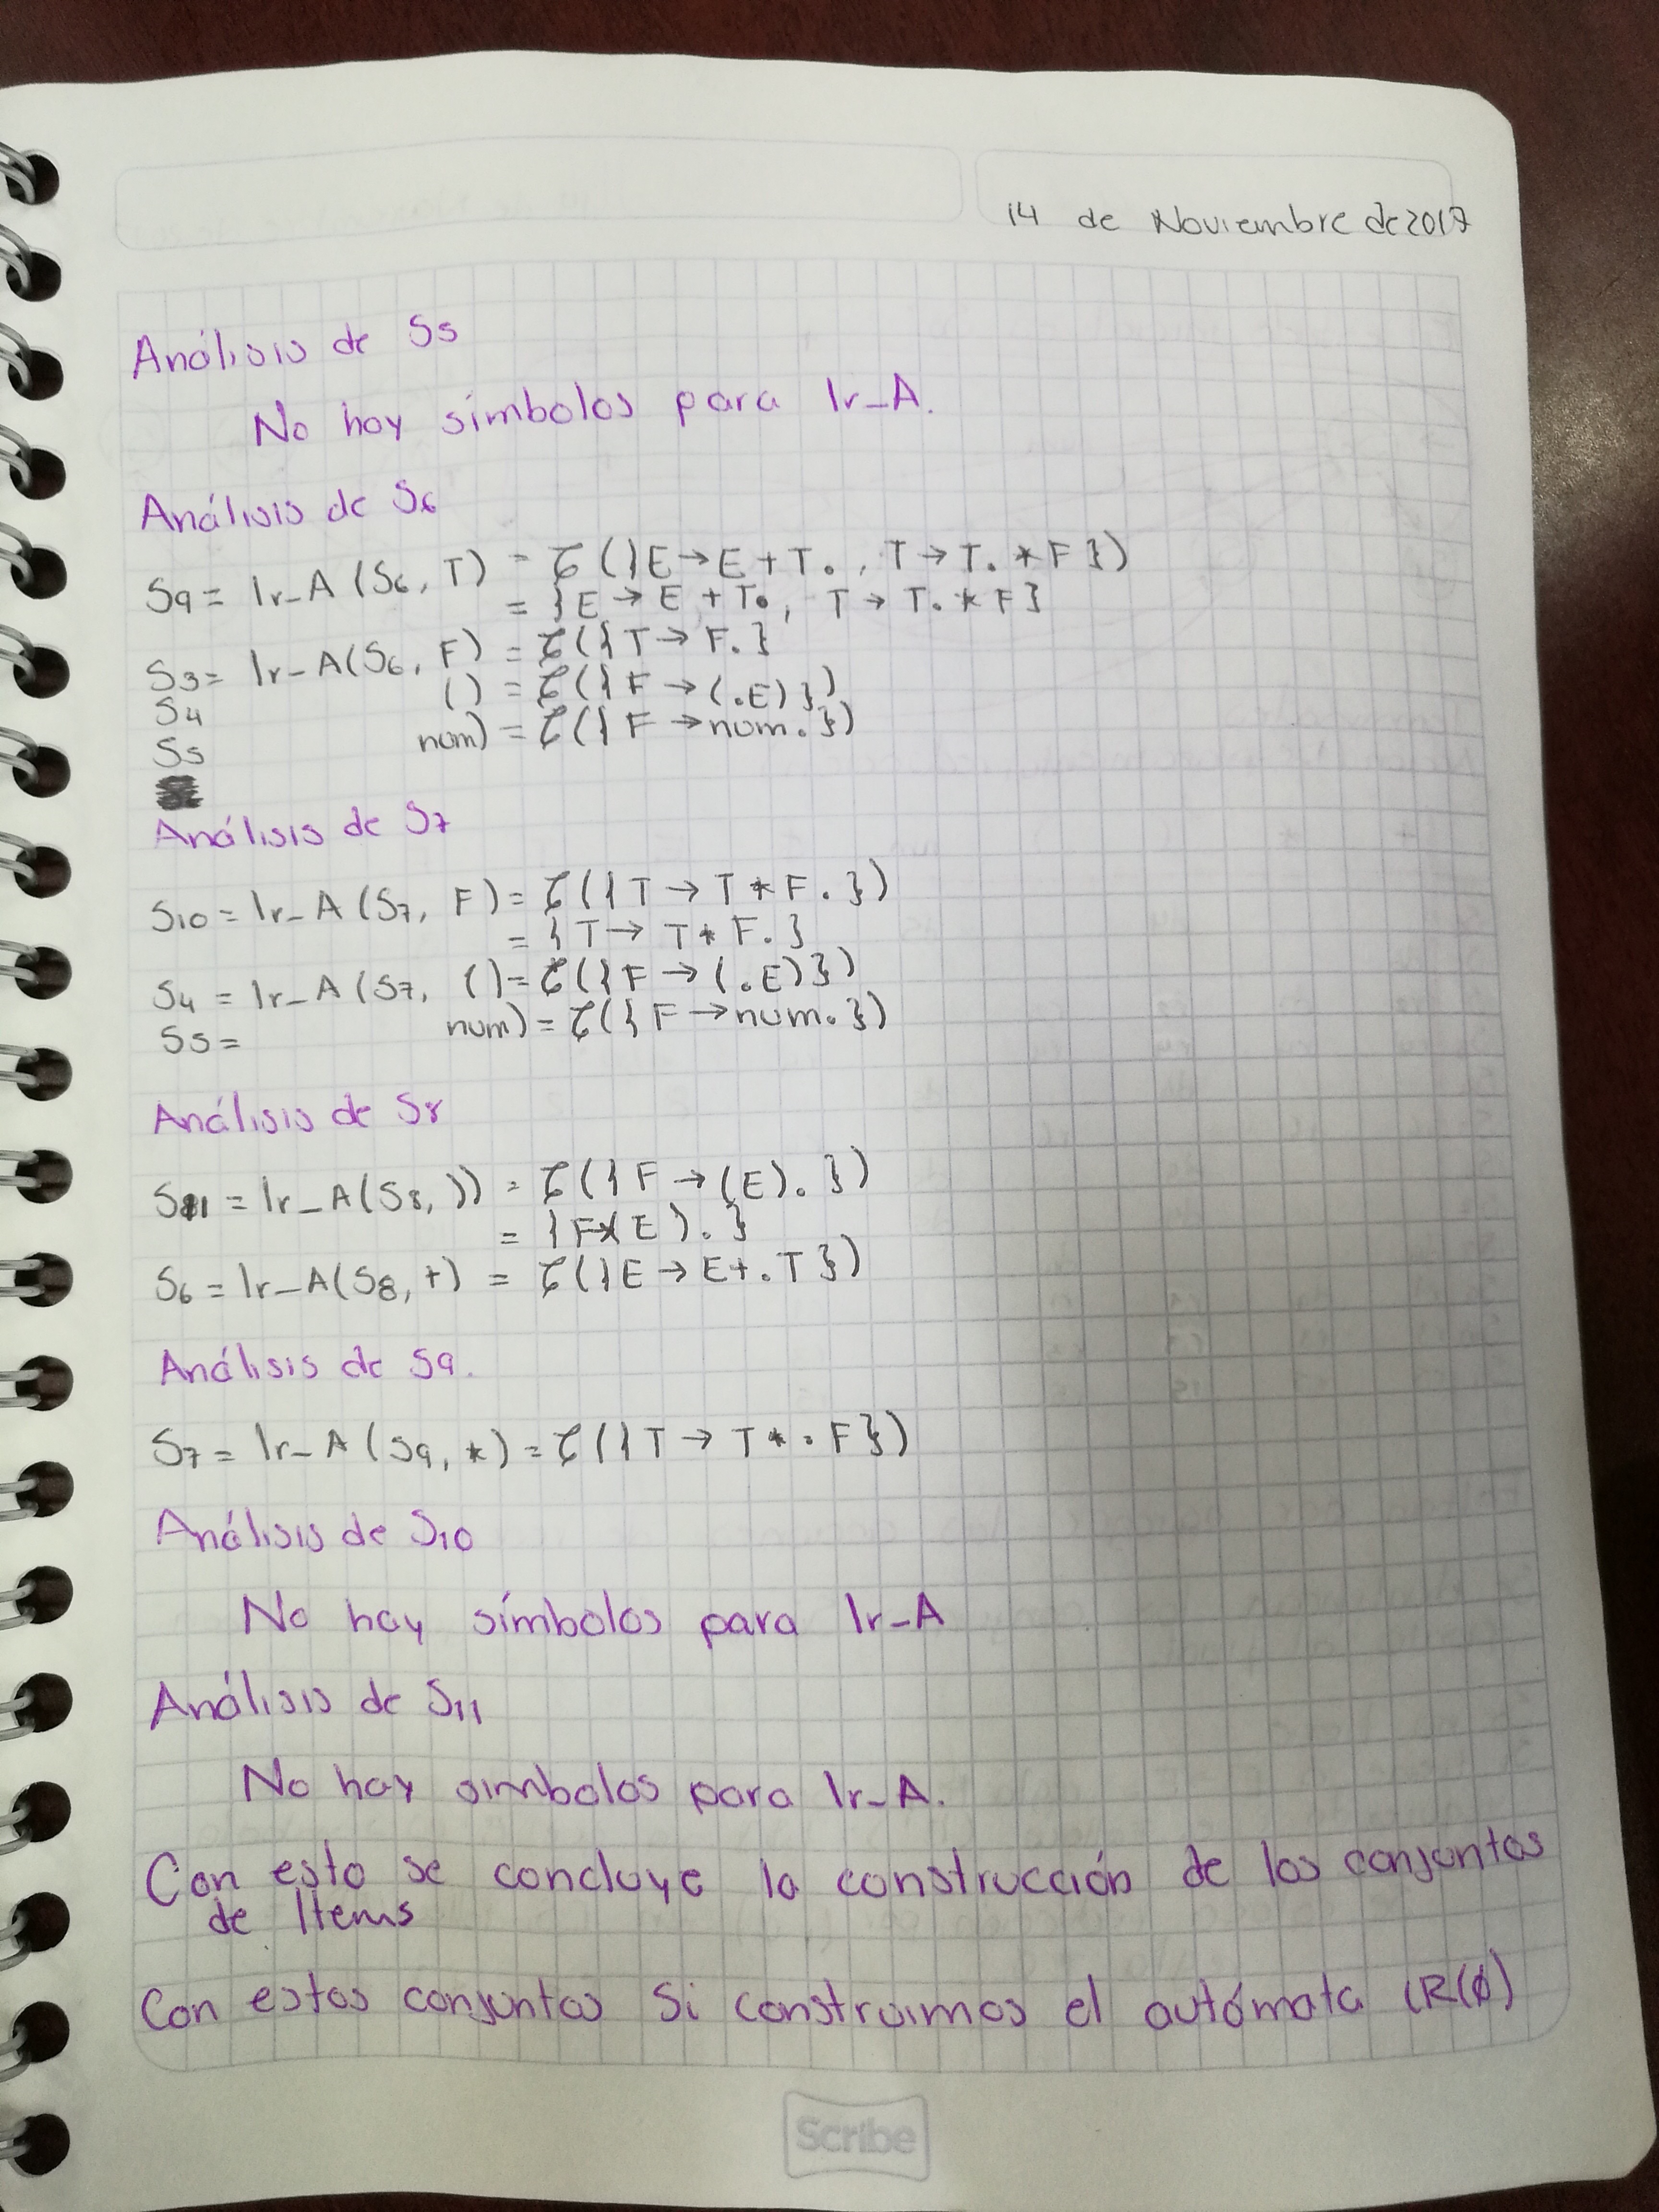 14 de Noviembre de 2017
Análisis de S5
No hay símbolos para Ir_A.
Análisis de S6
S9 = Ir_A (S6, T) = ζ({E → E + T. , T → T. * F})
= {E → E + T. , T → T. * F}
S3 = Ir_A(S6, F) = ζ({T → F.}
S4 () = ζ({F → (.E)})
S5 num) = ζ({F → num.})
Análisis de S7
S10 = Ir_A (S7, F) = ζ({T → T * F.})
= {T → T * F.}
S4 = Ir_A (S7, () = ζ({F → (.E)})
S5 = num) = ζ({F → num.})
Análisis de S8
S11 = Ir_A(S8, )) = ζ({F → (E).})
= {F→(E).}
S6 = Ir_A(S8, +) = ζ({E → E+.T})
Análisis de S9.
S7 = Ir_A (S9, *) = ζ({T → T*.F})
Análisis de S10
No hay símbolos para Ir_A
Análisis de S11
No hay simbolos para Ir_A.
Con esto se concluye la construcción de los conjuntos
de Items
Con estos conjuntos Si construimos el autómata LR(0)
Scribe